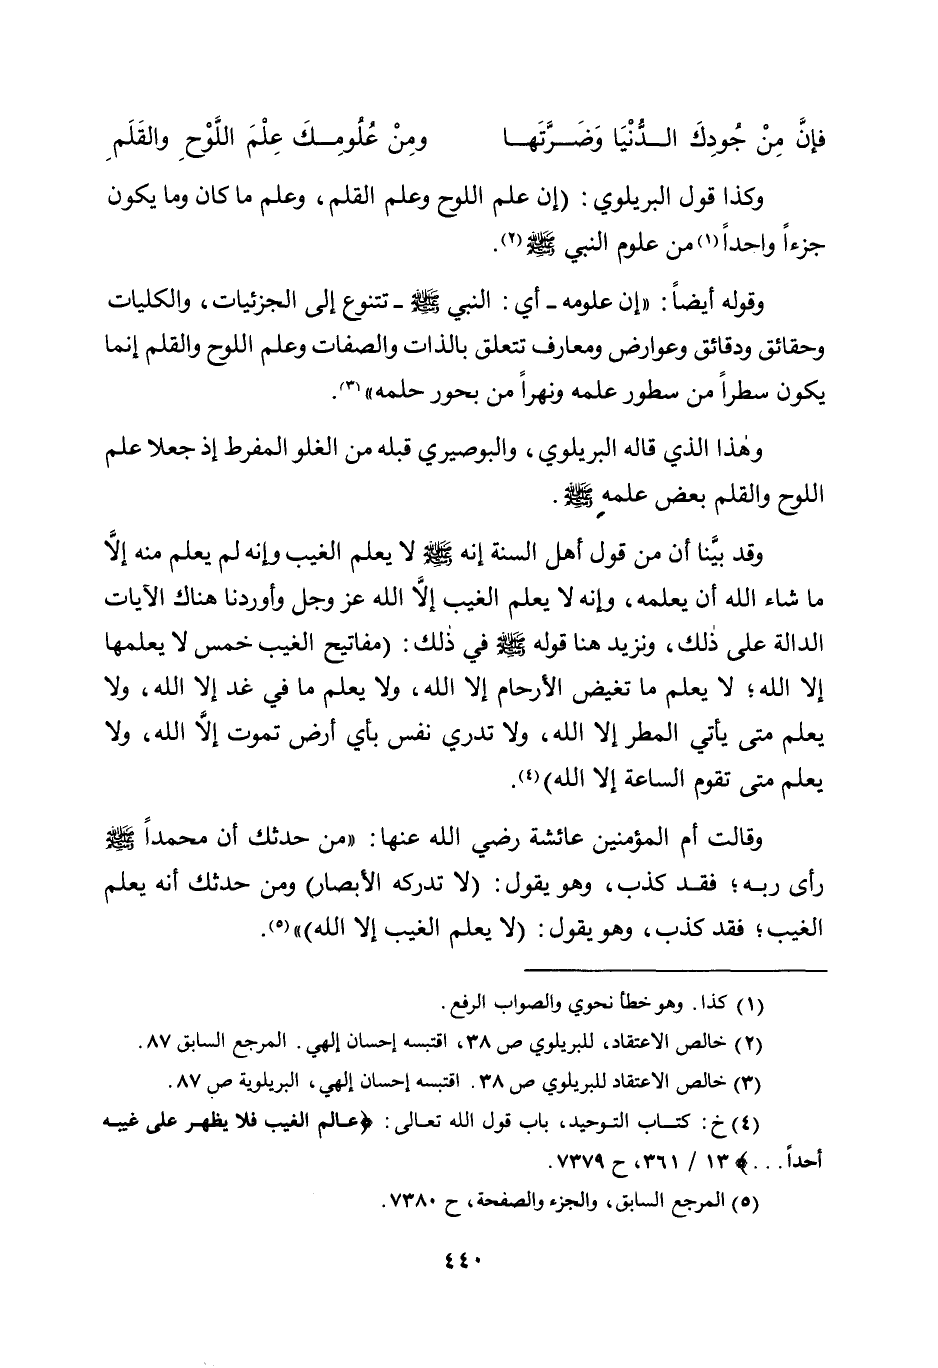 فإنَّ مِنْ جُودِكَ الـدُّنْيَا وَضَـرَّتَهـا ومِنْ عُلُومِـكَ عِلْمَ اللَّوْحِ والقَلَمِ
وكذا قول البريلوي : (إن علم اللوح وعلم القلم، وعلم ما كان وما يكون
جزءاً واحداً(١) من علوم النبي ﷺ(٢).
وقوله أيضاً: «إن علومه ـ أي : النبي ﷺ ـ تتنوع إلى الجزئيات، والكليات
وحقائق ودقائق وعوارض ومعارف تتعلق بالذات والصفات وعلم اللوح والقلم إنما
يكون سطراً من سطور علمه ونهراً من بحور حلمه»(٣).
وهٰذا الذي قاله البريلوي، والبوصيري قبله من الغلو المفرط إذ جعلا علم
اللوح والقلم بعض علمه ﷺ .
وقد بيَّنا أن من قول أهل السنة إنه ﷺ لا يعلم الغيب وإنه لم يعلم منه إلَّا
ما شاء الله أن يعلمه، وإنه لا يعلم الغيب إلَّا الله عز وجل وأوردنا هناك الآيات
الدالة على ذٰلك، ونزيد هنا قوله ﷺ في ذٰلك : (مفاتيح الغيب خمس لا يعلمها
إلا الله؛ لا يعلم ما تغيض الأرحام إلا الله، ولا يعلم ما في غد إلا الله، ولا
يعلم متى يأتي المطر إلا الله، ولا تدري نفس بأي أرض تموت إلَّا الله، ولا
يعلم متى تقوم الساعة إلا الله)(٤).
وقالت أم المؤمنين عائشة رضي الله عنها: «من حدثك أن محمداً ﷺ
رأى ربـه؛ فقـد كذب، وهو يقول: (لا تدركه الأبصار) ومن حدثك أنه يعلم
الغيب؛ فقد كذب، وهو يقول: (لا يعلم الغيب إلا الله)»(٥).
(١) كذا. وهو خطأ نحوي والصواب الرفع.
(٢) خالص الاعتقاد، للبريلوي ص ٣٨، اقتبسه إحسان إلهي. المرجع السابق ٨٧.
(٣) خالص الاعتقاد للبريلوي ص ٣٨. اقتبسه إحسان إلهي، البريلوية ص ٨٧.
(٤) خ: كتـاب التـوحيد، باب قول الله تعـالى: ﴿عـالم الغيب فلا يظهـر على غيبـه
أحداً...﴾ ١٣ / ٣٦١، ح ٧٣٧٩.
(٥) المرجع السابق، والجزء والصفحة، ح ٧٣٨٠.
٤٤٠